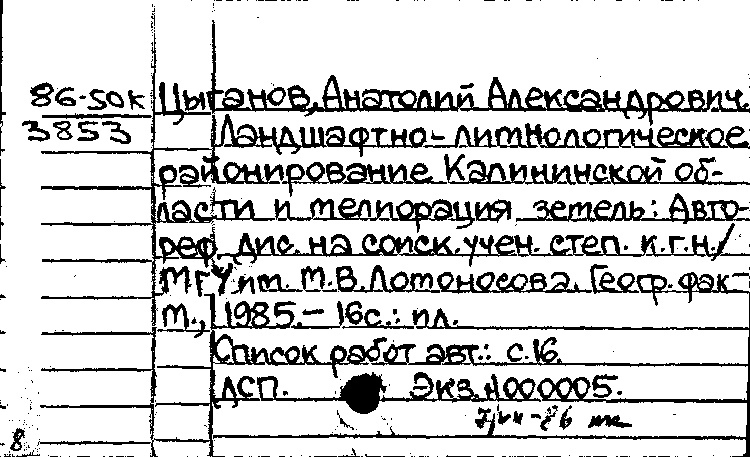 86-50к Цыганов, Анатолий Александрович.
3853 Ландшафтно-лимнологическое
районирование Калининской об-
ласти и мелиорация земель: Авто-
реф. дис. на соиск. учен. степ. к.г.н./
МГУ им. М.В. Ломоносова. Геогр. фак-
М., 1985.- 16с.: ил.
Список работ авт.: с.16.
ДСП. Экз. №000005.
8